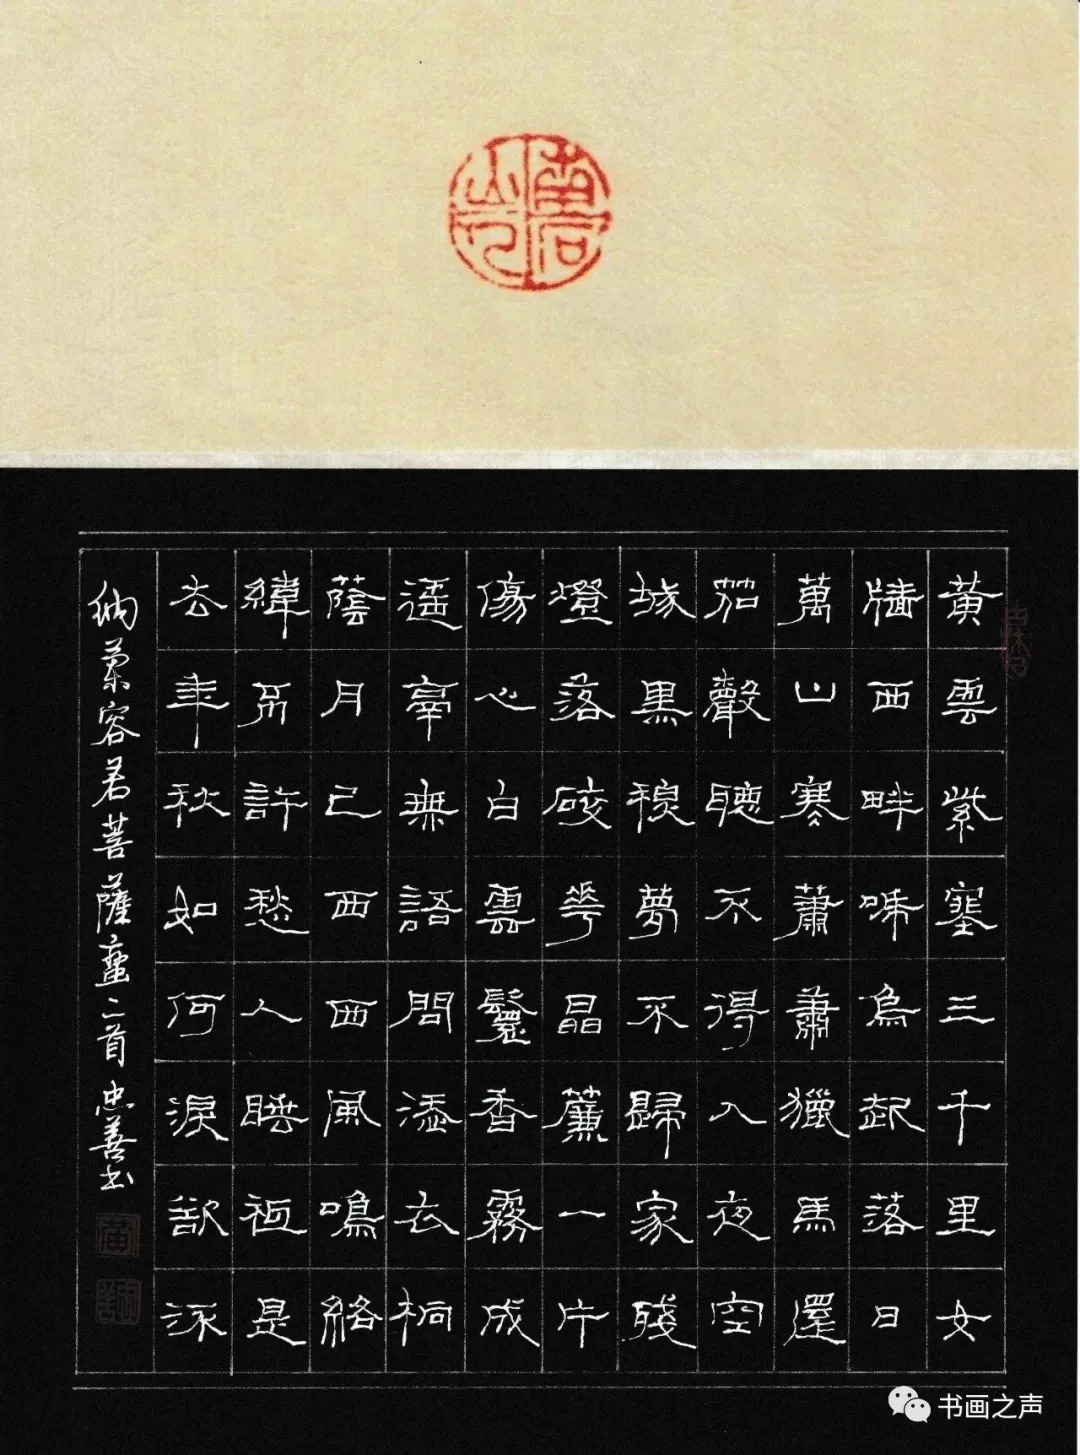 黃雲紫塞三千里女
牆西畔啼烏起落日
萬山寒蕭蕭獵馬還
笳聲聽不得入夜空
城黑穐夢不歸家殘
燈落碎花晶簾一片
傷心白雲鬟香霧成
遥鬲無語問添衣桐
蔭月已西西風鳴絡
緯不許愁人睡秪是
去年秋如何淚欲流
納蘭容若菩薩蠻二首忠善书
书画之声